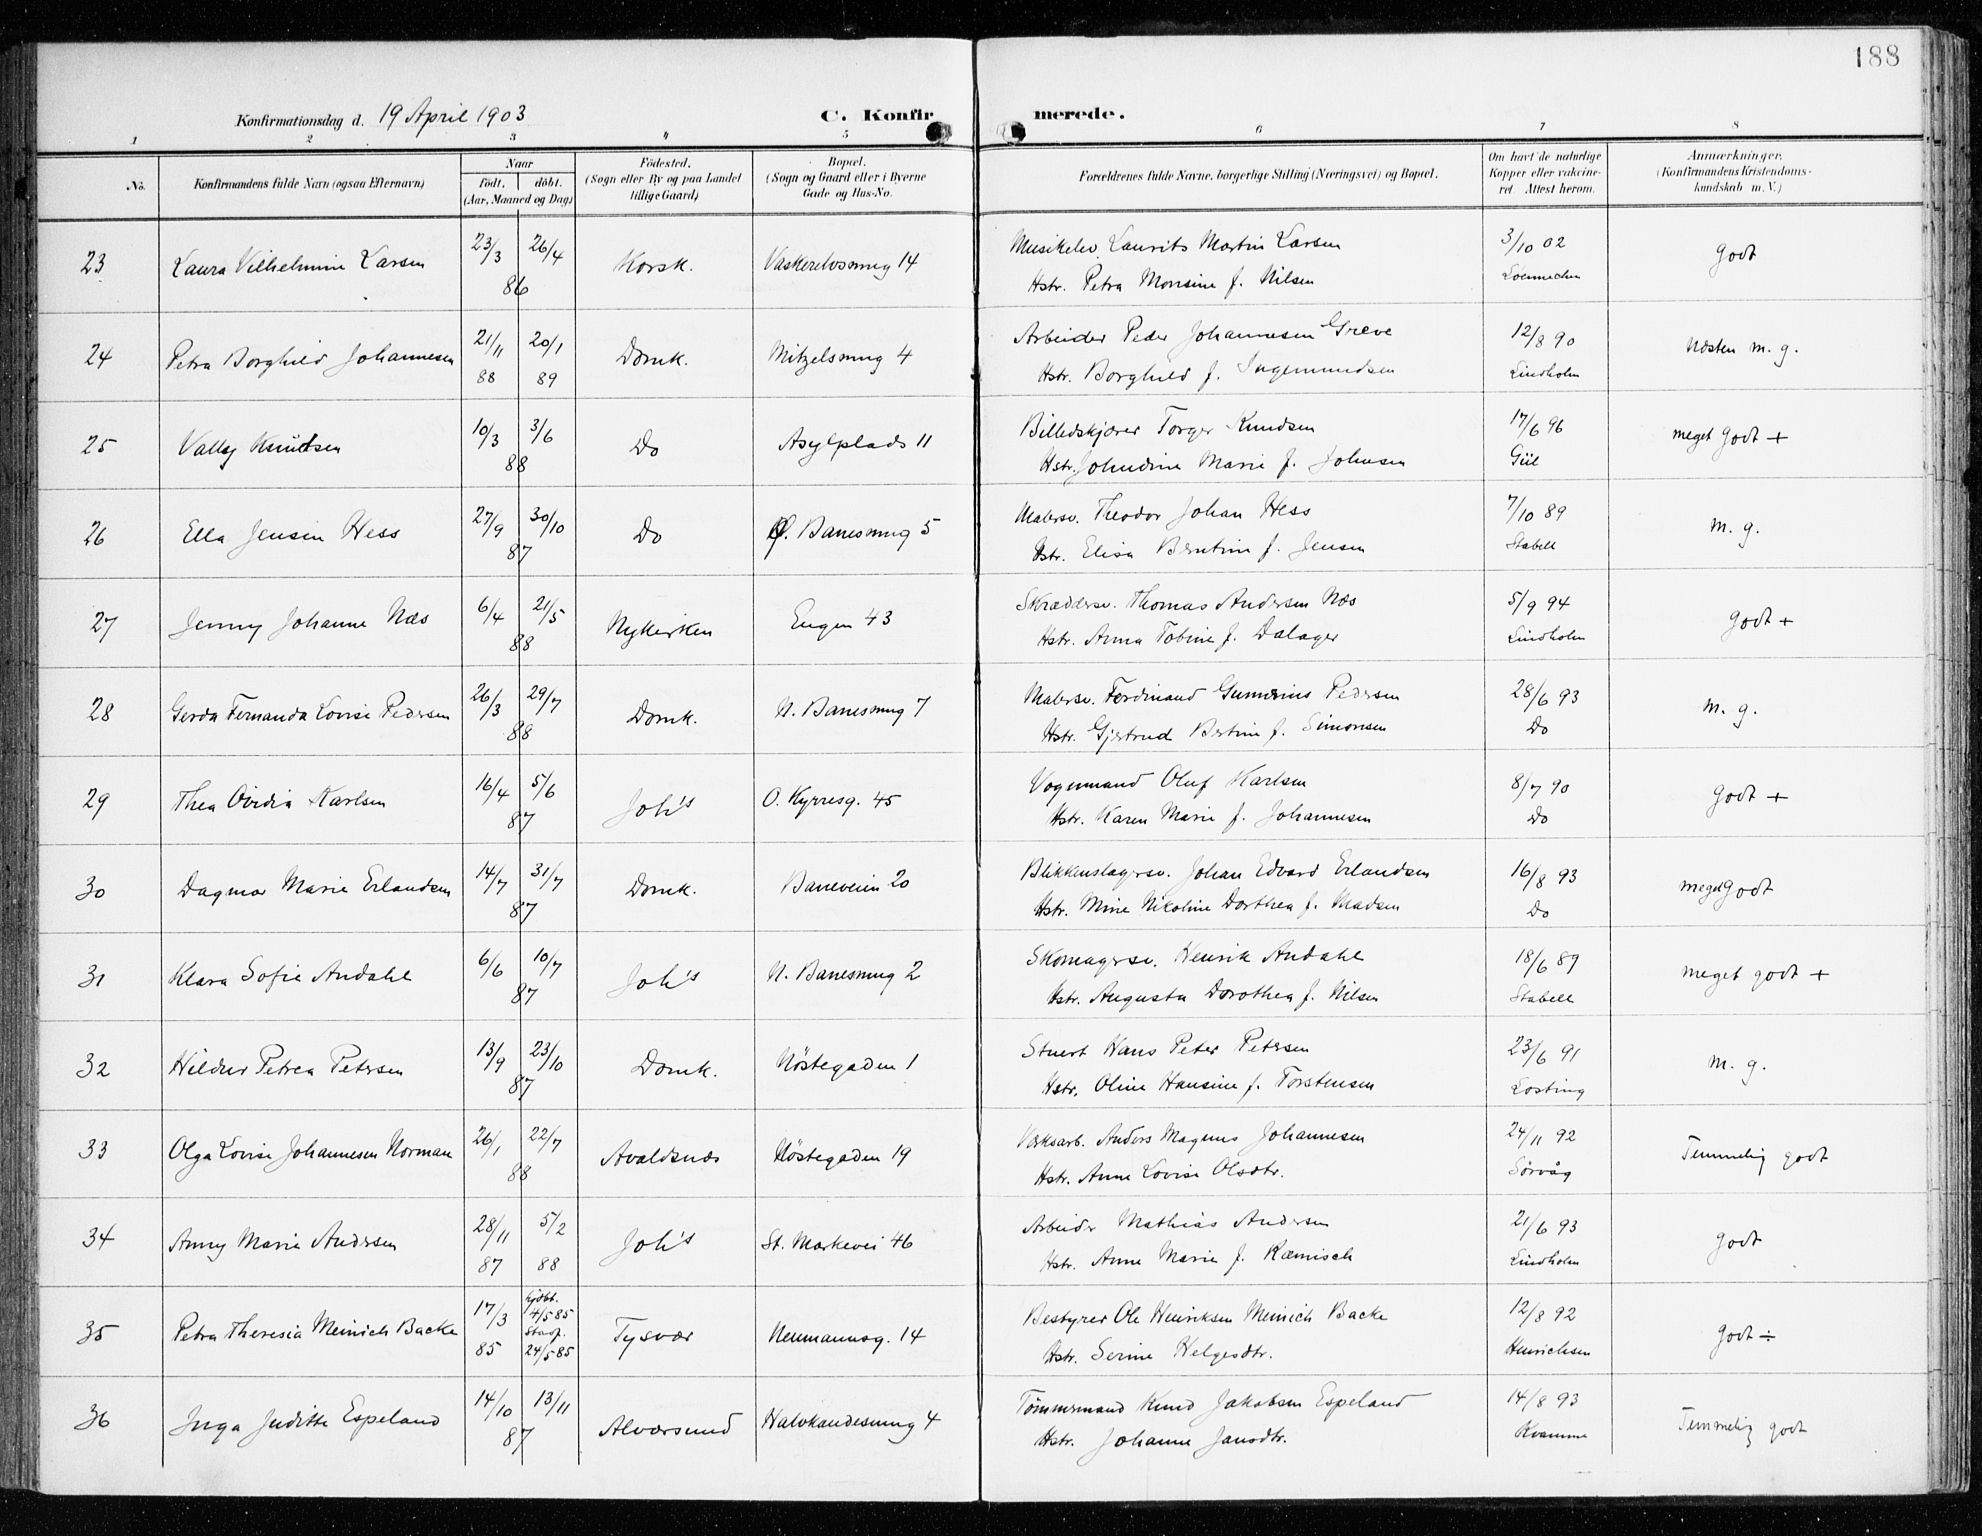 188
Konfirmationsdag d. 19 April 1903 C. Konfirmerede.
1 2 3 4 5 6 7 8
No. Konfirmandens fulde Navn (ogsaa Efternavn) Naar født. døbt. (Aar, Maaned og Dag) Fødested. (Sogn eller By og paa Landet tillige Gaard) Bopæl. (Sogn og Gaard eller i Byerne Gade og Hus-No. Forældrenes fulde Navne, borgerlige Stilling (Næringsvei) og Bopæl. Om havt de naturlige Kopper eller vakcineret. Attest herom. Anmærkninger. (Konfirmandens Kristendomskundskab m. V.)
23 Laura Vilhelmine Larsen 23/3 26/4 86 Korsk. Vaskerelvsmug 14 Musikelev Laurits Martin Larsen 3/10 02 Godt
Hstr. Petra Monsine f. Nilsen Loennechen
24 Petra Borghild Johannesen 21/11 88 20/1 89 Domk. Mitzelsmug 4 Arbeider Peder Johannesen Greve 12/8 90 Næsten m. g.
Hstr. Borghild f. Ingemundsen Lindholm
25 Vally Knudsen 10/3 3/6 88 Do Asylplads 11 Billedskjærer Torger Knudsen 17/6 96 meget Godt +
Hstr. Johndine Marie f. Johnsen Giil
26 Ella Jensin Hess 27/9 30/10 87 Do Ø. Banesmug 5 Malersv. Theodor Johan Hess 7/10 89 m. g.
Hstr. Elisa Berntine f. Jensen Stabell
27 Jenny Johanne Næs 6/4 21/5 88 Nykirken Engen 43 Skræddersv. Thomas Andersen Næs 5/9 94 Godt +
Hstr. Anna Tobine f. Dalager Lindholm
28 Gerda Fernanda Lovise Pedersen 26/3 29/7 88 Domk. N. Banesmug 7 Malersv. Ferdinand Gunerius Pedersen 28/6 93 m. g.
Hstr. Gjertrud Bertine f. Simonsen Do
29 Thea Ovidia Karlsen 16/4 5/6 87 Joh's O. Kyrresg. 45 Vognmand Oluf Karlsen 8/7 90 Godt +
Hstr. Karen Marie f. Johannesen Do
30 Dagmar Marie Erlandsen 14/7 31/7 87 Domk. Baneveien 20 Blikkenslagersv. Johan Edvard Erlandsen 16/8 93 meget Godt
Hstr. Mine Nikoline Dorthea f. Madsen Do
31 Klara Sofie Andahl 6/6 10/7 87 Joh's N. Banesmug 2 Skomagersv. Henrik Andahl 18/6 89 meget godt +
Hstr. Augusta Dorothea f. Nilsen Stabell
32 Hildur Petrea Petersen 13/9 23/10 87 Domk. Nöstegaden 1 Stuert Hans Peter Petersen 23/6 91 m. g.
Hstr. Oline Hansine f. Torstensen Losting
33 Olga Lovise Johannesen Norman 26/1 22/7 88 Avaldsnæs Nöstegaden 19 Værksarb. Anders Magnus Johannesen 24/11 92 Temmelig godt
Hstr. Anne Lovise Olsdtr. Sörvåg
34 Anny Marie Andersen 28/11 87 5/2 88 Joh's St. Markevei 46 Arbeider Mathias Andersen 21/6 93 Godt
Hstr. Anne Marie f. Ræmisch Lindholm
35 Petra Theresia Meinich Backe 17/3 85 hjdbt. 4/5 85 Stadf. 24/5 85 Tysvær Neumannsg. 14 Bestyrer Ole Henriksen Meinich Backe 12/8 92 Godt ÷
Hstr. Serine Helgesdtr. Henrichsen
36 Inga Juditte Espeland 14/10 13/11 87 Alversund Halvkandesmug 4 Tømmermand Knud Jakobsen Espeland 14/8 93 Temmelig godt
Hstr. Johanne Jansdtr. Kvamme